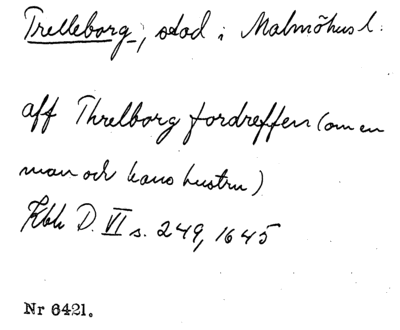 Trelleborg, stad i Malmöhus l.
aff Threlborg fordreffen (om en
man och hans hustru)
Kbh D. VI s. 249, 1645
Nr 6421.